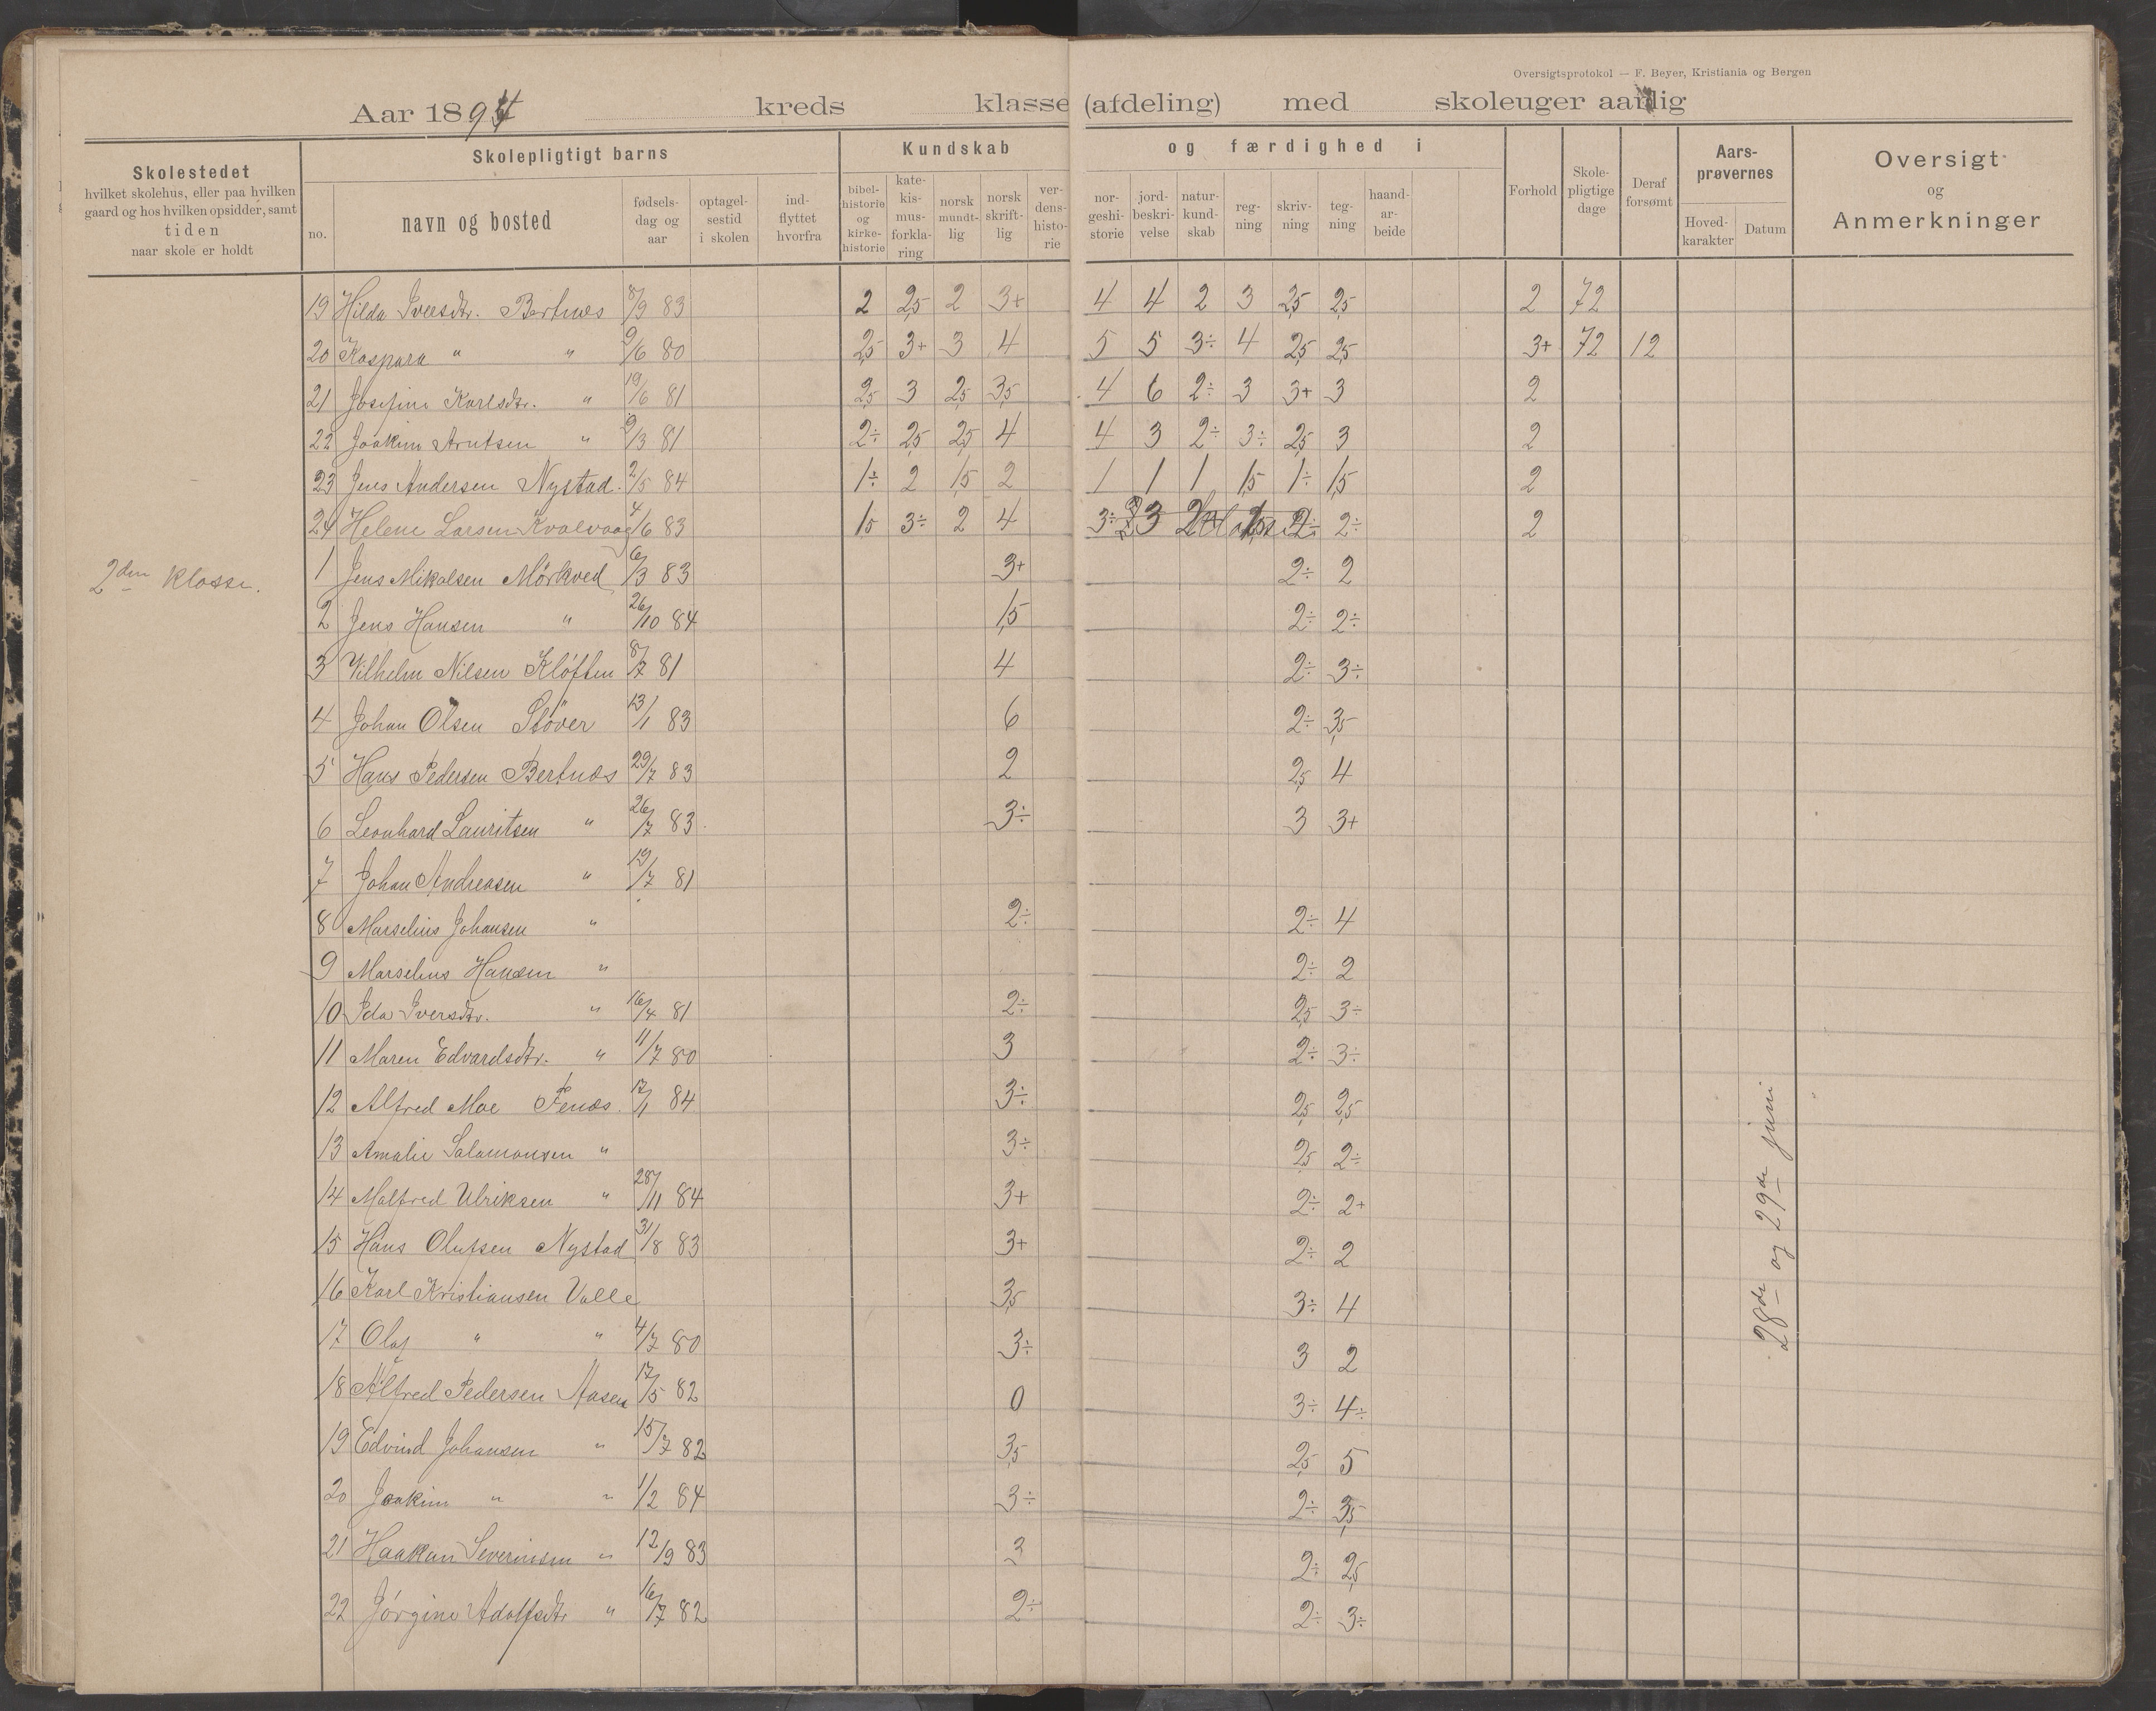 Oversigtsprotokol — F. Beyer, Kristiania og Bergen
Aar 1894 kreds klasse (afdeling) med skoleuger aarlig
Skolestedet
hvilket skolehus, eller paa hvilken
gaard og hos hvilken opsidder, samt
tiden
naar skole er holdt
Skolepligtigt barns
no.
navn og bosted
fødsels-
dag og
aar
optagel-
sestid
i skolen
ind-
flyttet
hvorfra
Kundskab og færdighed i
bibel-
historie
og
kirke-
historie
kate-
kis-
mus-
forkla-
ring
norsk
mundt-
lig
norsk
skrift-
lig
ver-
dens-
histo-
rie
nor-
geshi-
storie
jord-
beskri-
velse
natur-
kund-
skab
reg-
ning
skriv-
ning
teg-
ning
haand-
ar-
beide
Forhold
Skole-
pligtige
dage
Deraf
forsømt
Aars-
prøvernes
Hoved-
karakter
Datum
Oversigt
og
Anmerkninger
19 Hilda Iversdtr. Bertnes 8/9 83 2 2,5 2 3+ 4 4 2 3 2,5 2,5 2 72
20 Kaspara " " 9/6 80 2,5 3+ 3 4 5 5 3÷ 4 2,5 2,5 3+ 72 12
21 Josefine Karlsdtr. " 19/6 81 2,5 3 2,5 3,5 4 6 2÷ 3 3+ 3 2
22 Joakim Arntsen " 9/3 81 2÷ 2,5 2,5 4 4 3 2÷ 3÷ 2,5 3 2
23 Jens Andersen Nystad 2/5 84 1÷ 2 1,5 2 1 1 1 1,5 1÷ 1,5 2
24 Helene Larsen Kvalvaag 4/6 83 1,5 3÷ 2 4 3÷ 3 2÷ 2÷ 2
2den klasse.
1 Jens Mikalsen Mörkved 6/3 83 3+ 2÷ 2
2 Jens Hansen " 26/10 84 1,5 2÷ 2÷
3 Vilhelm Nilsen Kløften 8/7 81 4 2÷ 3÷
4 Johan Olsen Støver 13/1 83 6 2÷ 3,5
5 Hans Pedersen Bertnes 29/7 83 2 2,5 4
6 Leonhard Lauritsen " 26/7 83 3÷ 3 3+
7 Johan Andreasen " 19/7 81
8 Marselius Johansen " 2÷ 2÷ 4
9 Marselius Hansen " 2÷ 2
10 Ida Iversdtr. " 16/4 81 2÷ 2,5 3÷
11 Maren Edvardsdtr. " 11/7 80 3 2÷ 3÷
12 Alfred Moe Fenes 17/1 84 3÷ 2,5 2,5
13 Amalie Salamonsen " 3÷ 2,5 2÷
14 Malfred Ulriksen " 28/11 84 3+ 2÷ 2+
15 Hans Olufsen Nystad 31/8 83 3+ 2÷ 2
16 Karl Kristiansen Valle 3,5 3÷ 4
17 Olaf " " 4/7 80 3÷ 3 2
18 Alfred Pedersen Aasen 17/5 82 0 3÷ 4÷
19 Edvind Johansen " 15/7 82 3,5 2,5 5
20 Joakim " " 1/2 84 3÷ 2÷ 3,5
21 Haakan Severinsen " 12/9 83 3 2÷ 2,5
22 Jörgine Adolfsdtr " 16/7 82 2÷ 2÷ 3÷
28de og 29de juni